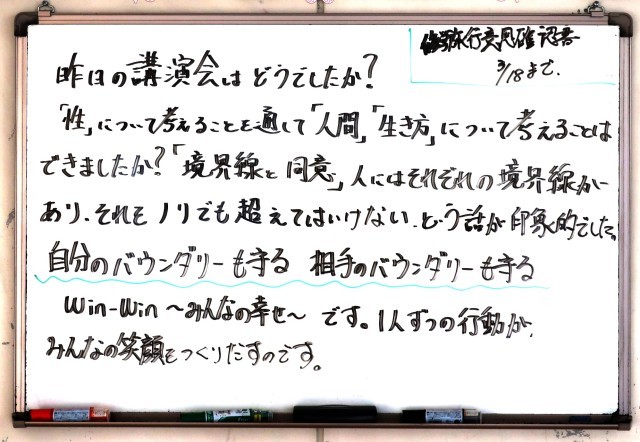 修学旅行意思確認書
3/18まで.
昨日の講演会はどうでしたか?
「性」について考えることを通して「人間」「生き方」について考えることは
できましたか?「境界線と同意」人にはそれぞれの境界線が
あり、それをノリでも超えてはいけない、という話が印象的でした。
自分のバウンダリーも守る 相手のバウンダリーも守る
Win-Win 〜みんなの幸せ〜 です。1人ずつの行動が、
みんなの笑顔をつくりだすのです。